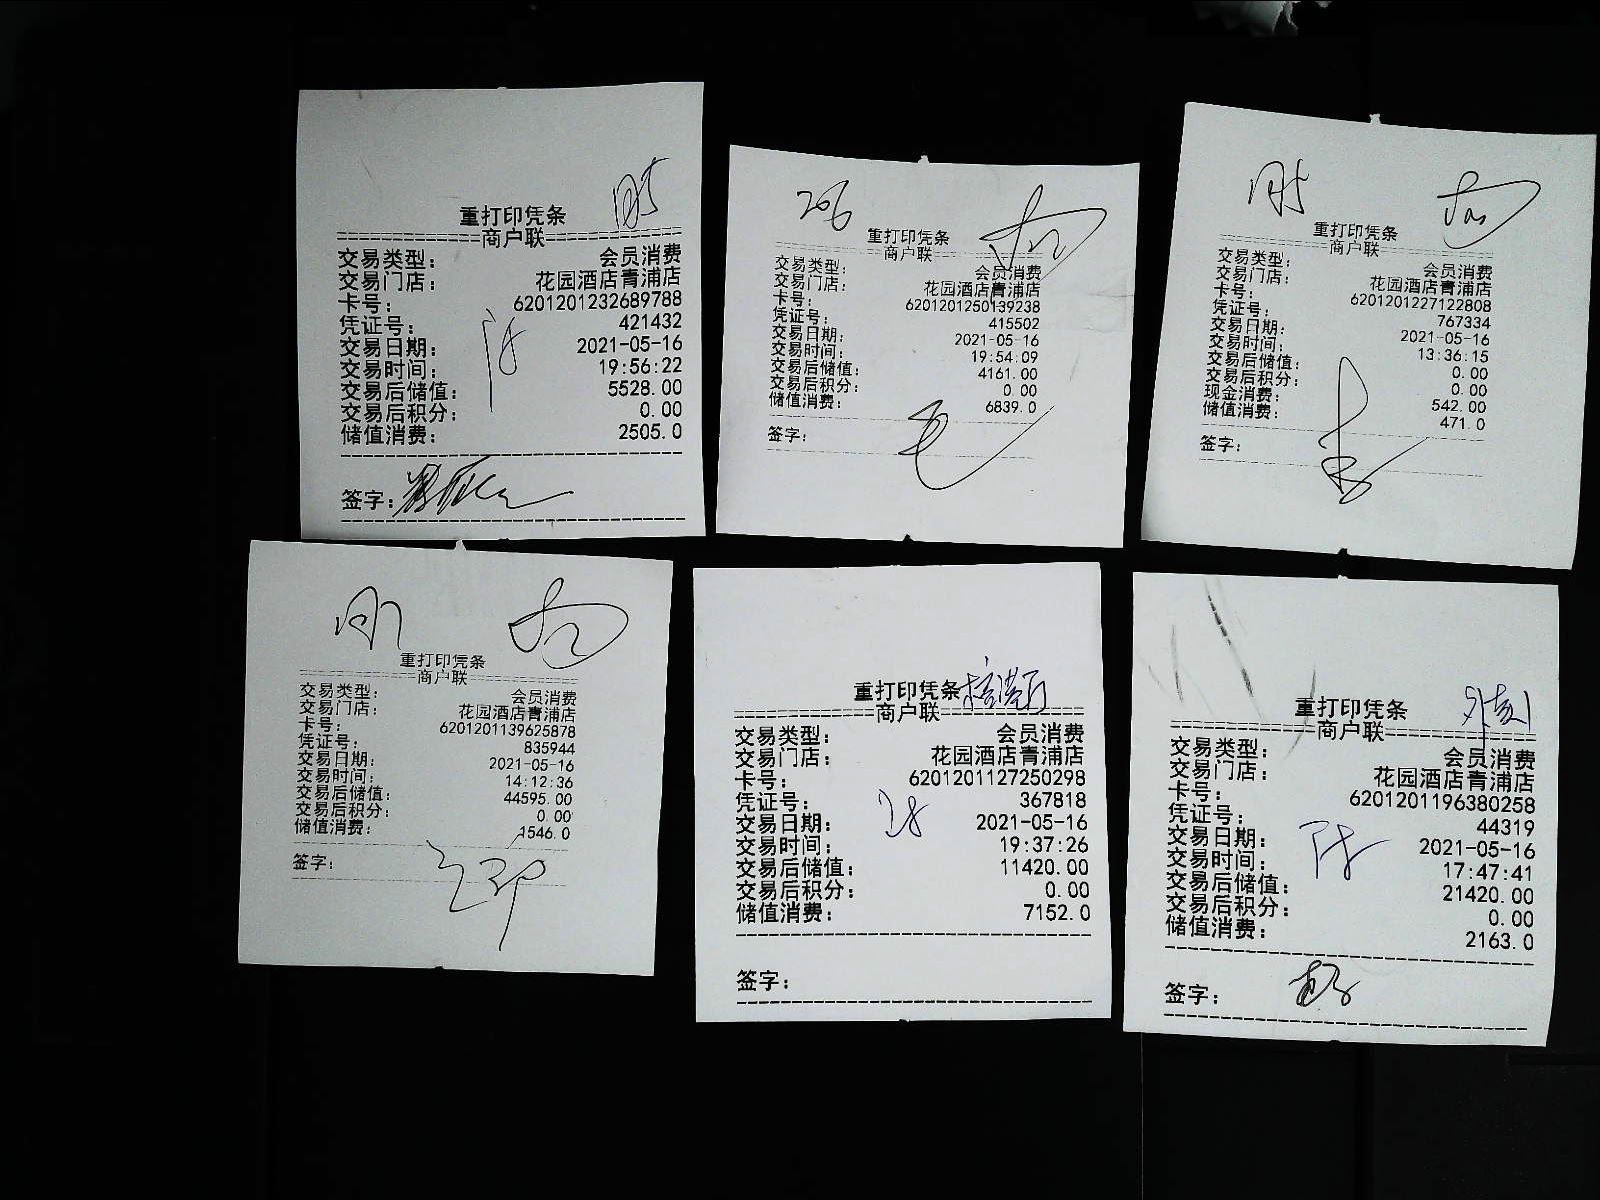 重打印凭条
商户联
交易类型： 会员消费
交易门店： 花园酒店青浦店
卡号： 6201201232689788
凭证号： 421432
交易日期： 2021-05-16
交易时间： 19:56:22
交易后储值： 5528.00
交易后积分： 0.00
储值消费： 2505.0
签字：
206
重打印凭条
商户联
交易类型： 会员消费
交易门店： 花园酒店青浦店
卡号： 6201201250139238
凭证号： 415502
交易日期： 2021-05-16
交易时间： 19:54:09
交易后储值： 4161.00
交易后积分： 0.00
储值消费： 6839.0
签字：
重打印凭条
商户联
交易类型： 会员消费
交易门店： 花园酒店青浦店
卡号： 6201201227122808
凭证号： 767334
交易日期： 2021-05-16
交易时间： 13:36:15
交易后储值： 0.00
交易后积分： 0.00
现金消费： 542.00
储值消费： 471.0
签字：
重打印凭条
商户联
交易类型： 会员消费
交易门店： 花园酒店青浦店
卡号： 6201201139625878
凭证号： 835944
交易日期： 2021-05-16
交易时间： 14:12:36
交易后储值： 44595.00
交易后积分： 0.00
储值消费： 1546.0
签字：
重打印凭条
商户联
交易类型： 会员消费
交易门店： 花园酒店青浦店
卡号： 6201201127250298
凭证号： 367818
交易日期： 2021-05-16
交易时间： 19:37:26
交易后储值： 11420.00
交易后积分： 0.00
储值消费： 7152.0
签字：
重打印凭条
商户联
交易类型： 会员消费
交易门店： 花园酒店青浦店
卡号： 6201201196380258
凭证号： 44319
交易日期： 2021-05-16
交易时间： 17:47:41
交易后储值： 21420.00
交易后积分： 0.00
储值消费： 2163.0
签字：